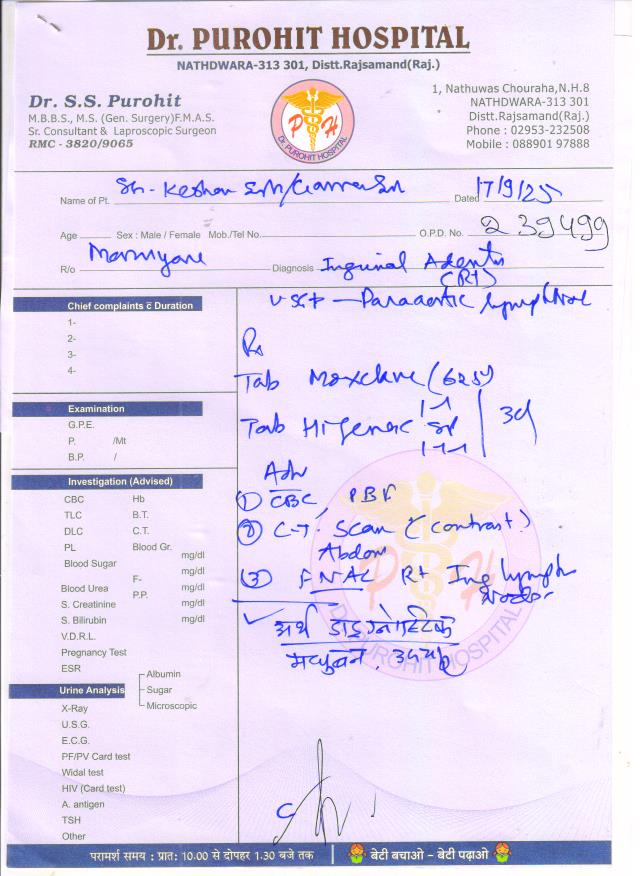 Dr. PUROHIT HOSPITAL
NATHDWARA-313 301, Distt.Rajsamand(Raj.)
Dr. S.S. Purohit
M.B.B.S., M.S. (Gen. Surgery)F.M.A.S.
Sr. Consultant & Laproscopic Surgeon
RMC - 3820/9065
P H
Dr. PUROHIT HOSPITAL
1, Nathuwas Chouraha,N.H.8
NATHDWARA-313 301
Distt.Rajsamand(Raj.)
Phone : 02953-232508
Mobile : 088901 97888
Name of Pt.
Dated 17/9/25
Age Sex : Male / Female Mob./Tel No. O.P.D. No. 239499
R/o Diagnosis Inguinal Adenitis
(Rt)
USG - Paraaortic lymph Node
Chief complaints c̄ Duration
1-
2-
3-
4-
Rx
Tab Moxclave (625)
1-1
Tab Hifenac
1-1 3d
Examination
G.P.E.
P. /Mt
B.P. /
Adv
① CBC, PBF
② C.T. Scan (contrast)
Abdom
③ FNAC Rt Ing lymph
Node
अर्थ डाइग्नोस्टिक
मधुबन, उदयपुर
Investigation (Advised)
CBC Hb
TLC B.T.
DLC C.T.
PL Blood Gr.
Blood Sugar mg/dl
F- mg/dl
Blood Urea mg/dl
P.P.
S. Creatinine mg/dl
S. Bilirubin mg/dl
V.D.R.L.
Pregnancy Test
ESR
Urine Analysis Albumin
Sugar
Microscopic
X-Ray
U.S.G.
E.C.G.
PF/PV Card test
Widal test
HIV (Card test)
A. antigen
TSH
Other
परामर्श समय : प्रात: 10.00 से दोपहर 1.30 बजे तक
बेटी बचाओ - बेटी पढ़ाओ